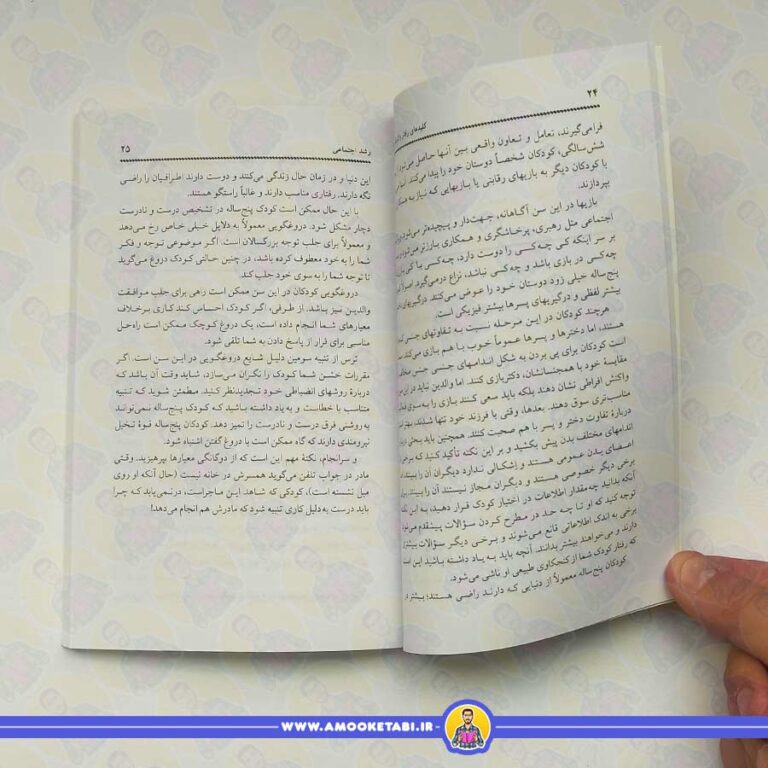 ۲۴
کلیدهای رفتار با
فرامی‌گیرند، تعامل و تعاون واقعی بین آنها حاصل می‌شود.
شش‌سالگی، کودکان شخصاً دوستان خود را پیدا می‌کنند.
با کودکان دیگر به بازیهای رقابتی یا بازیهایی که نیاز به
بپردازند.
بازیها در این سن آگاهانه، جهت‌دار و پیچیده‌تر می‌شود
اجتماعی مثل رهبری، پرخاشگری و همکاری بارزتر می‌شود
بر سر اینکه کی چه‌کسی را دوست دارد، چه‌کسی با کی
چه‌کسی در بازی باشد و چه‌کسی نباشد، نزاع درمی‌گیرد.
پنج‌ساله خیلی زود دوستان خود را عوض می‌کنند. درگیریهای
بیشتر لفظی و درگیریهای پسرها بیشتر فیزیکی است.
هرچند کودکان در این مرحله نسبت به تفاوتهای جنسی
هستند، اما دخترها و پسرها عموماً خوب با هم بازی می‌کنند
است کودکان برای پی بردن به شکل اندامهای جنسی جنس
مقایسهٔ خود با همجنسانشان، دکتربازی کنند. اما والدین نباید در این
واکنش افراطی نشان دهند بلکه باید سعی کنند بازی را به سوی
مناسب‌تری سوق دهند. بعدها، وقتی با فرزند خود تنها شدند،
دربارهٔ تفاوت دختر و پسر با هم صحبت کنند. همچنین باید
اندامهای مختلف بدن پیش بکشید و بر این نکته تأکید کنید که
اعضای بدن عمومی هستند و اشکالی ندارد دیگران آن را ببینند
برخی دیگر خصوصی هستند و دیگران مجاز نیستند آن را ببینند.
آنکه بدانید چه‌مقدار اطلاعات در اختیار کودک قرار دهید، به این
توجه کنید که او تا چه حد در مطرح کردن سؤالات پیشقدم می‌شود
برخی به اندک اطلاعاتی قانع می‌شوند و برخی دیگر سؤالات بیشتری
دارند و می‌خواهند بیشتر بدانند. آنچه باید به یاد داشته باشید این است
که رفتار کودک شما از کنجکاوی طبیعی او ناشی می‌شود.
کودکان پنج‌ساله معمولاً از دنیایی که دارند راضی هستند؛ بیشتر در
رشد اجتماعی ۲۵
این دنیا و در زمان حال زندگی می‌کنند و دوست دارند اطرافیان را راضی
نگه دارند. رفتاری مناسب دارند و غالباً راستگو هستند.
با این حال ممکن است کودک پنج‌ساله در تشخیص درست و نادرست
دچار مشکل شود. دروغگویی معمولاً به دلایل خیلی خاص رخ می‌دهد
و معمولاً برای جلب توجه بزرگسالان است. اگر موضوعی توجه و فکر
شما را به خود معطوف کرده باشد، در چنین حالتی کودک دروغ می‌گوید
تا توجه شما را به سوی خود جلب کند.
دروغگویی کودکان در این سن ممکن است راهی برای جلب موافقت
والدین نیز باشد. از طرفی، اگر کودک احساس کند کاری برخلاف
معیارهای شما انجام داده است، یک دروغ کوچک ممکن است راه‌حل
مناسبی برای فرار از پاسخ دادن به شما تلقی شود.
ترس از تنبیه سومین دلیل شایع دروغگویی در این سن است. اگر
مقررات خشن شما کودک را نگران می‌سازد، شاید وقت آن باشد که
دربارهٔ روشهای انضباطی خود تجدیدنظر کنید. مطمئن شوید که تنبیه
متناسب با خطاست و به یاد داشته باشید که کودک پنج‌ساله نمی‌تواند
به‌روشنی فرق درست و نادرست را تمیز دهد. کودکان پنج‌ساله قوهٔ تخیل
نیرومندی دارند که گاه ممکن است با دروغ گفتن اشتباه شود.
و سرانجام، نکتهٔ مهم این است که از دوگانگی معیارها بپرهیزید. وقتی
مادر در جواب تلفن می‌گوید همسرش در خانه نیست (حال آنکه او روی
مبل نشسته است)، کودکی که شاهد این ماجراست، درنمی‌یابد که چرا
باید درست به دلیل کاری تنبیه شود که مادرش هم انجام می‌دهد!
WWW.AMOOKETABI.IR